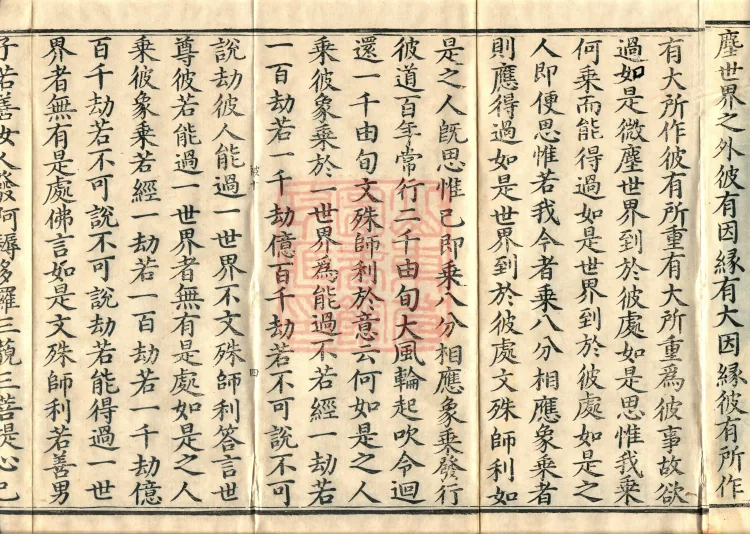 塵世界之外彼有因緣有大因緣彼有所作
有大所作彼有所重有大所重爲彼事故欲
過如是微塵世界到於彼處如是思惟我乘
何乘而能得過如是世界到於彼處如是之
人即便思惟若我今者乘八分相應象乘者
則應得過如是世界到於彼處文殊師利如
是之人旣思惟已即乘八分相應象乘發行
彼道百年常行二千由旬大風輪起吹令迴
還一千由旬文殊師利於意云何如是之人
乘彼象乘於一世界爲能過不若經一劫若
一百劫若一千劫億百千劫若不可說不可
說劫彼人能過一世界不文殊師利答言世
尊彼若能過一世界者無有是處如是之人
乘彼象乘若經一劫若一百劫若一千劫億
百千劫若不可說不可說劫若能得過一世
界者無有是處佛言如是文殊師利若善男
子若善女人發阿耨多羅三藐三菩提心已